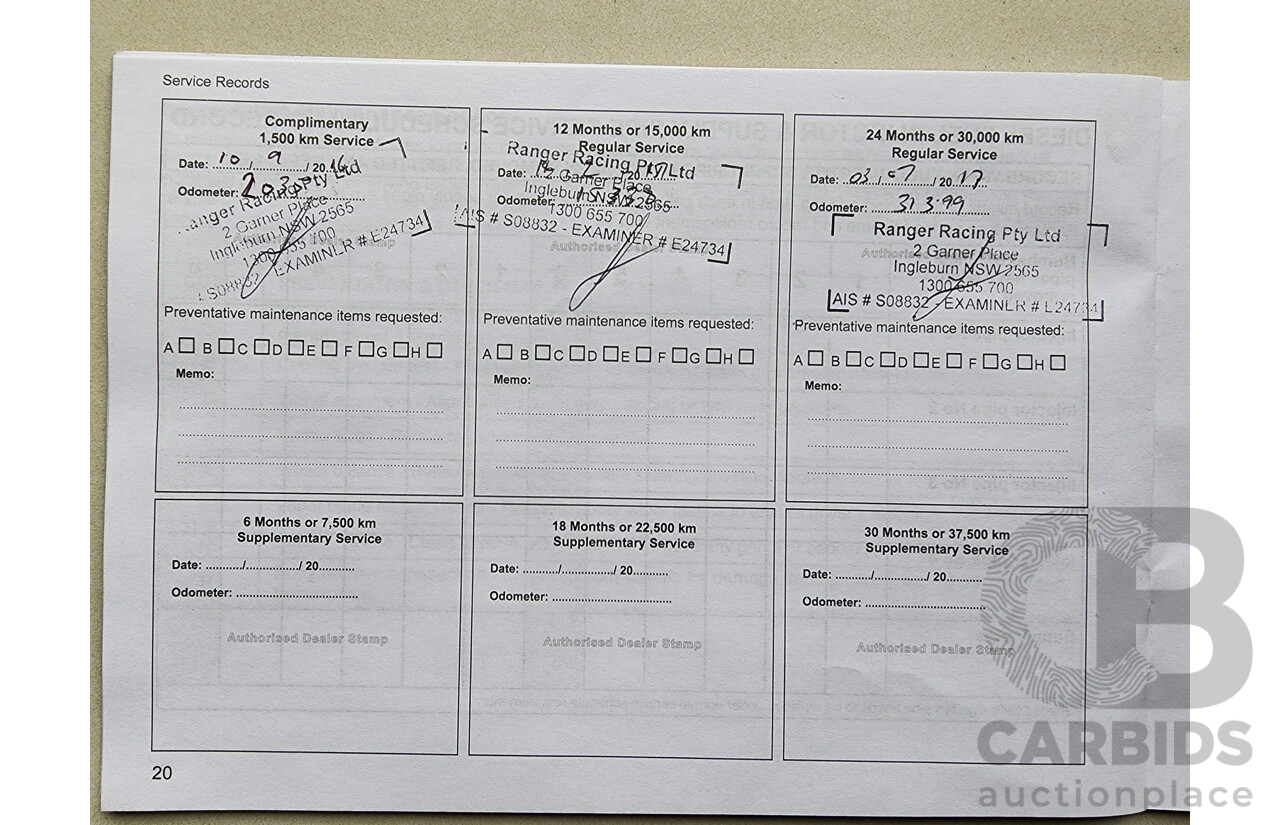 Service Records
Complimentary
1,500 km Service
Date: 10 / 9 / 2016
Odometer:
Ranger Racing Pty Ltd
2 Garner Place
Ingleburn NSW 2565
1300 655 700
S08832 - EXAMINER # E24734
Preventative maintenance items requested:
A B C D E F G H
Memo:
12 Months or 15,000 km
Regular Service
Date: / 2017
Odometer:
Ranger Racing Pty Ltd
2 Garner Place
Ingleburn NSW 2565
1300 655 700
AIS # S08832 - EXAMINER # E24734
Authorised Dealer Stamp
Preventative maintenance items requested:
A B C D E F G H
Memo:
24 Months or 30,000 km
Regular Service
Date: 03 / 07 / 2017
Odometer: 31399
Ranger Racing Pty Ltd
2 Garner Place
Ingleburn NSW 2565
1300 655 700
AIS # S08832 - EXAMINER # E24734
Preventative maintenance items requested:
A B C D E F G H
Memo:
6 Months or 7,500 km
Supplementary Service
Date: ........../............../ 20.........
Odometer: ................................
Authorised Dealer Stamp
18 Months or 22,500 km
Supplementary Service
Date: ........../............../ 20.........
Odometer: ................................
Authorised Dealer Stamp
30 Months or 37,500 km
Supplementary Service
Date: ........../............../ 20.........
Odometer: ................................
Authorised Dealer Stamp
20
CB
CARBIDS
auctionplace